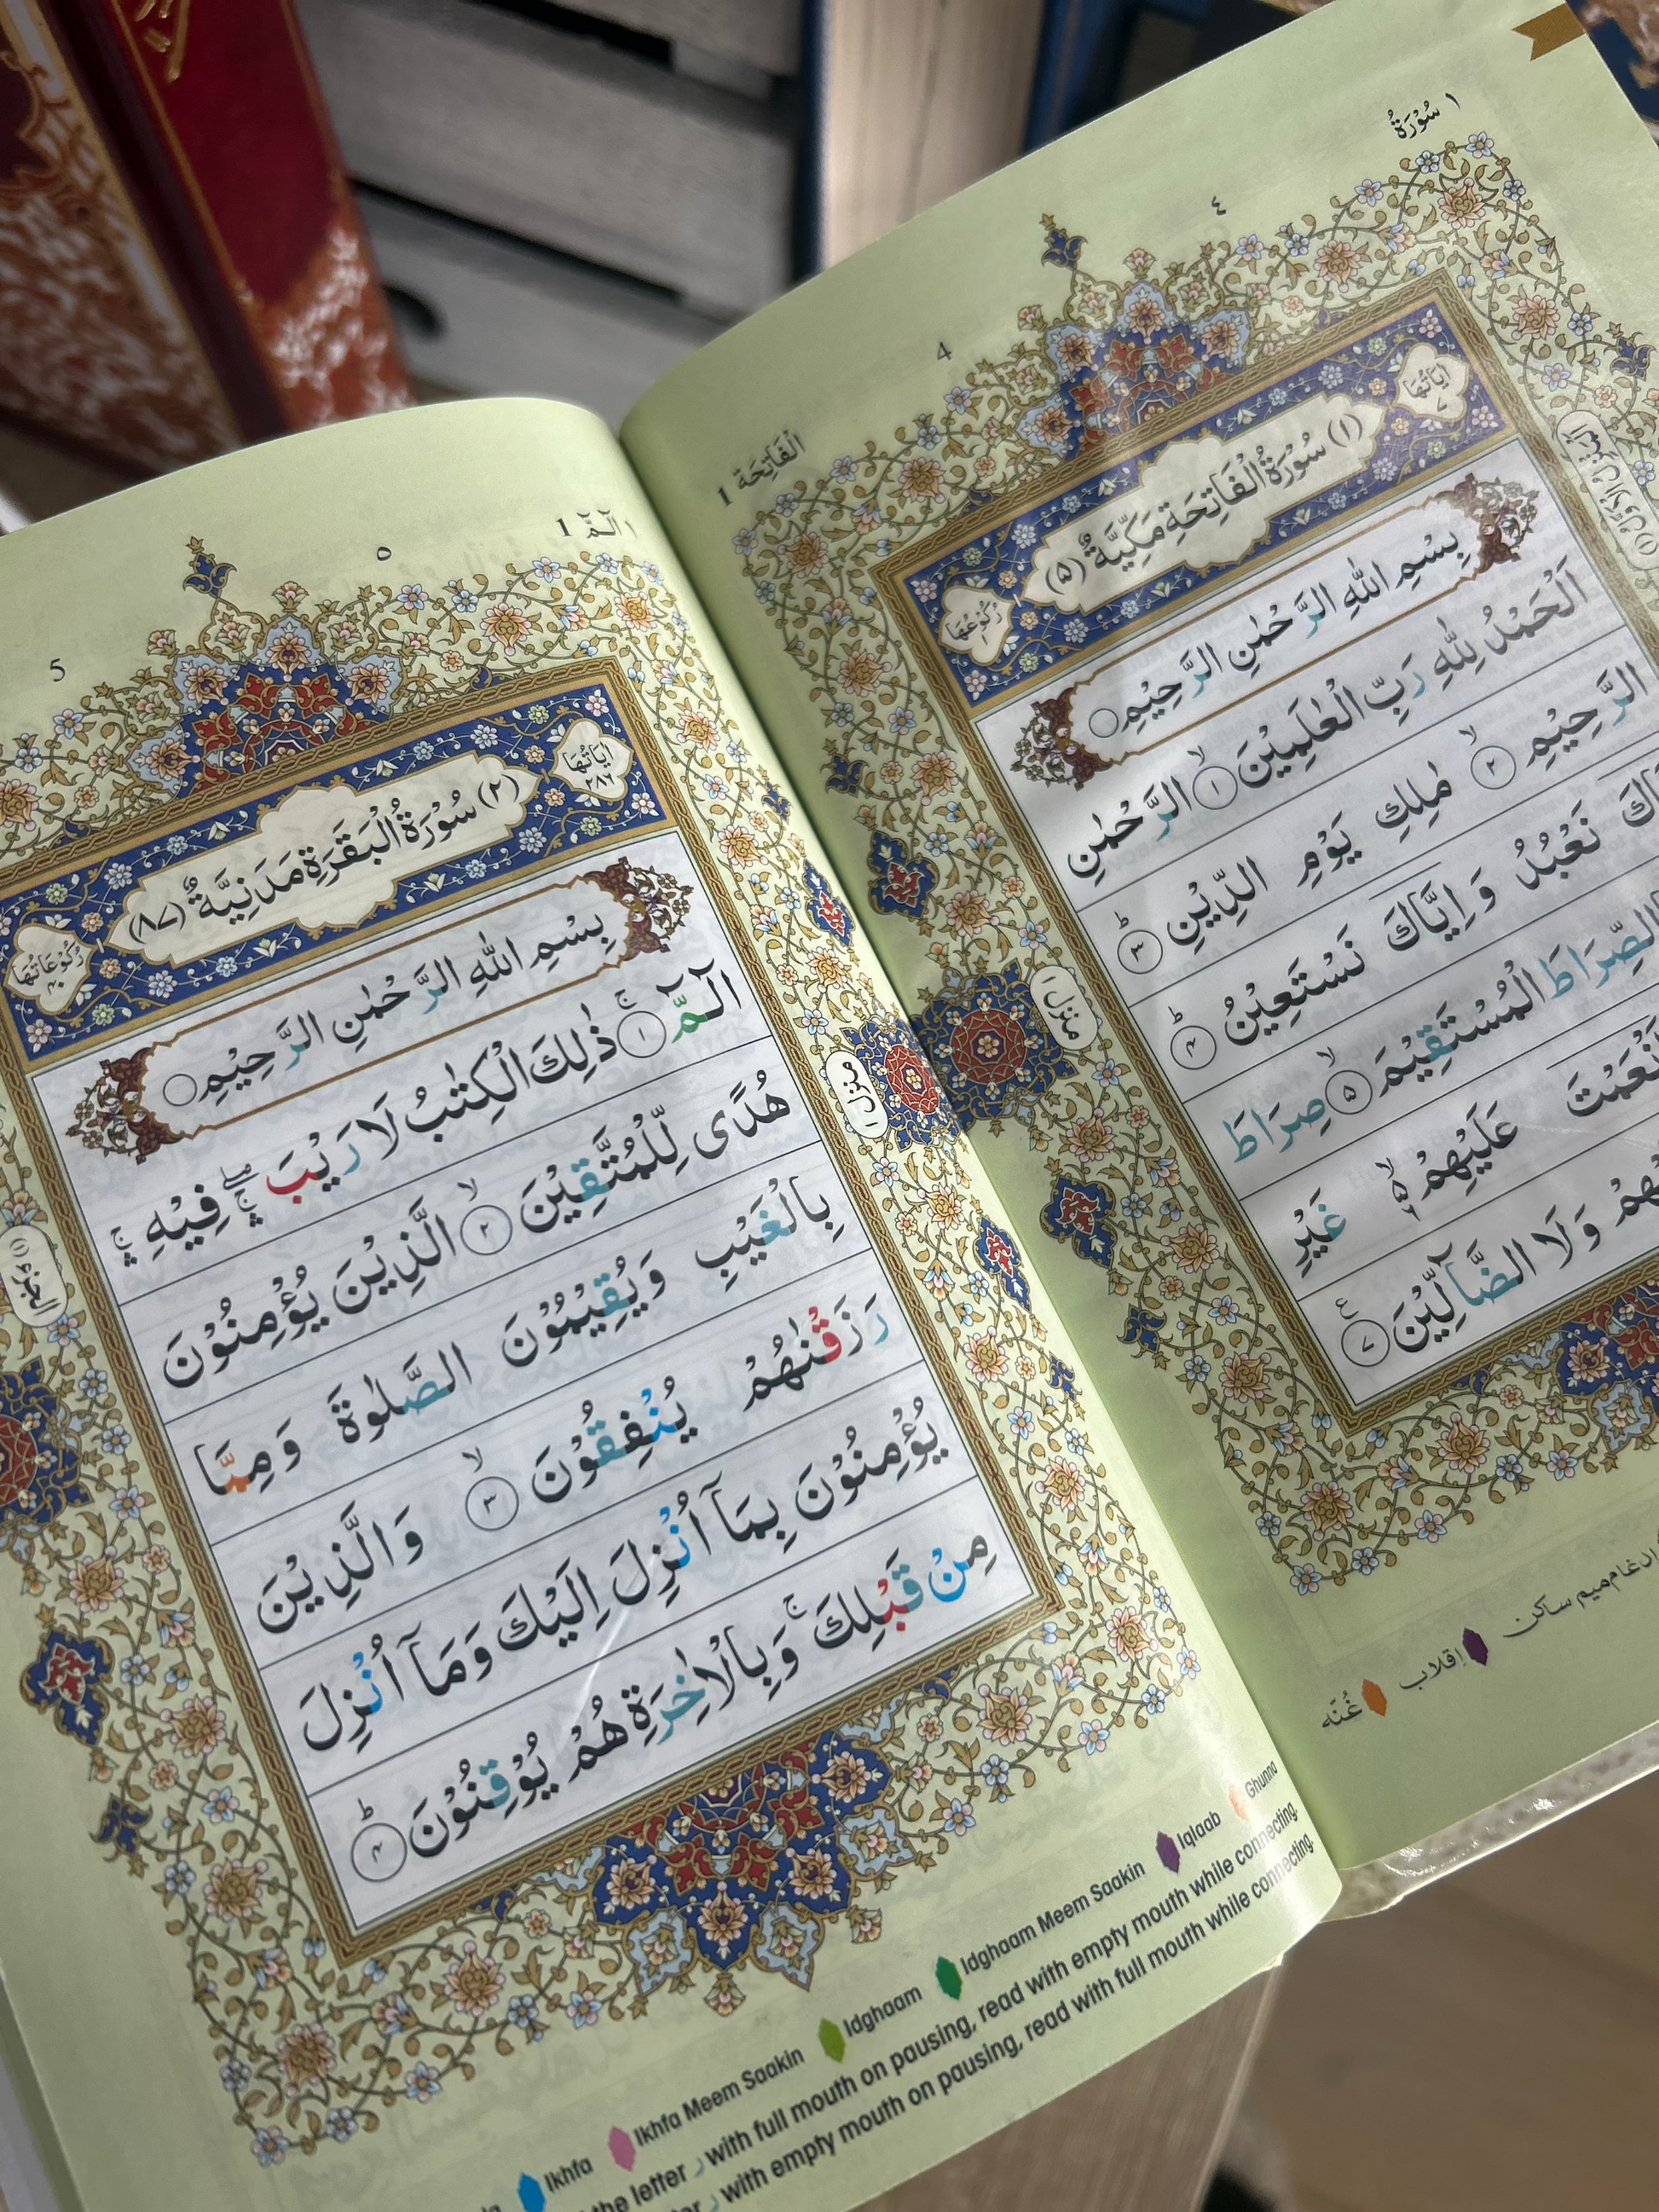 ١ سُوْرَةُ
٤
4
الْفَاتِحَة 1
اٰيَاتُهَا
(١) سُوْرَةُ الْفَاتِحَةِ مَكِّيَّةٌ (٥)
رُكُوْعُهَا
بِسْمِ اللّٰهِ الرَّحْمٰنِ الرَّحِيْمِ ○
اَلْحَمْدُ لِلّٰهِ رَبِّ الْعٰلَمِيْنَ ۙ﴿١﴾ الرَّحْمٰنِ
الرَّحِيْمِ ۙ﴿٢﴾ مٰلِكِ يَوْمِ الدِّيْنِ ؕ﴿٣﴾
نَعْبُدُ وَ اِيَّاكَ نَسْتَعِيْنُ ؕ﴿٤﴾
الصِّرَاطَ الْمُسْتَقِيْمَ ۙ﴿٥﴾ صِرَاطَ
اَنْعَمْتَ عَلَيْهِمْ ۙ۬ غَيْرِ
وَلَا الضَّآلِّيْنَ ﴿٧﴾ ع
مَنزل ١
اَلْمَنْزِلُ الْاَوَّلُ (١)
ادغام میم ساکن
اِقلاب
غُنّه
١ الٓمّٓ 1
٥
5
اٰيَاتُهَا ٢٨٦
(٢) سُوْرَةُ الْبَقَرَةِ مَدَنِيَّةٌ (٨٧)
رُكُوْعَاتُهَا ٤٠
بِسْمِ اللّٰهِ الرَّحْمٰنِ الرَّحِيْمِ ○
الٓمّٓ ۚ﴿١﴾ ذٰلِكَ الْكِتٰبُ لَا رَيْبَ ۛۖۚ فِيْهِ ۛۚ
هُدًى لِّلْمُتَّقِيْنَ ۙ﴿٢﴾ الَّذِيْنَ يُؤْمِنُوْنَ
بِالْغَيْبِ وَيُقِيْمُوْنَ الصَّلٰوةَ وَمِمَّا
رَزَقْنٰهُمْ يُنْفِقُوْنَ ۙ﴿٣﴾ وَالَّذِيْنَ
يُؤْمِنُوْنَ بِمَآ اُنْزِلَ اِلَيْكَ وَمَآ اُنْزِلَ
مِنْ قَبْلِكَ ۚ وَبِالْاٰخِرَةِ هُمْ يُوْقِنُوْنَ ؕ﴿٤﴾
مَنزل ١
الجزء (١)
Ikhfa Ikhfa Meem Saakin Idghaam Idghaam Meem Saakin Iqlaab Ghunna
the letter ر with full mouth on pausing, read with empty mouth while connecting.
ر with empty mouth on pausing, read with full mouth while connecting.